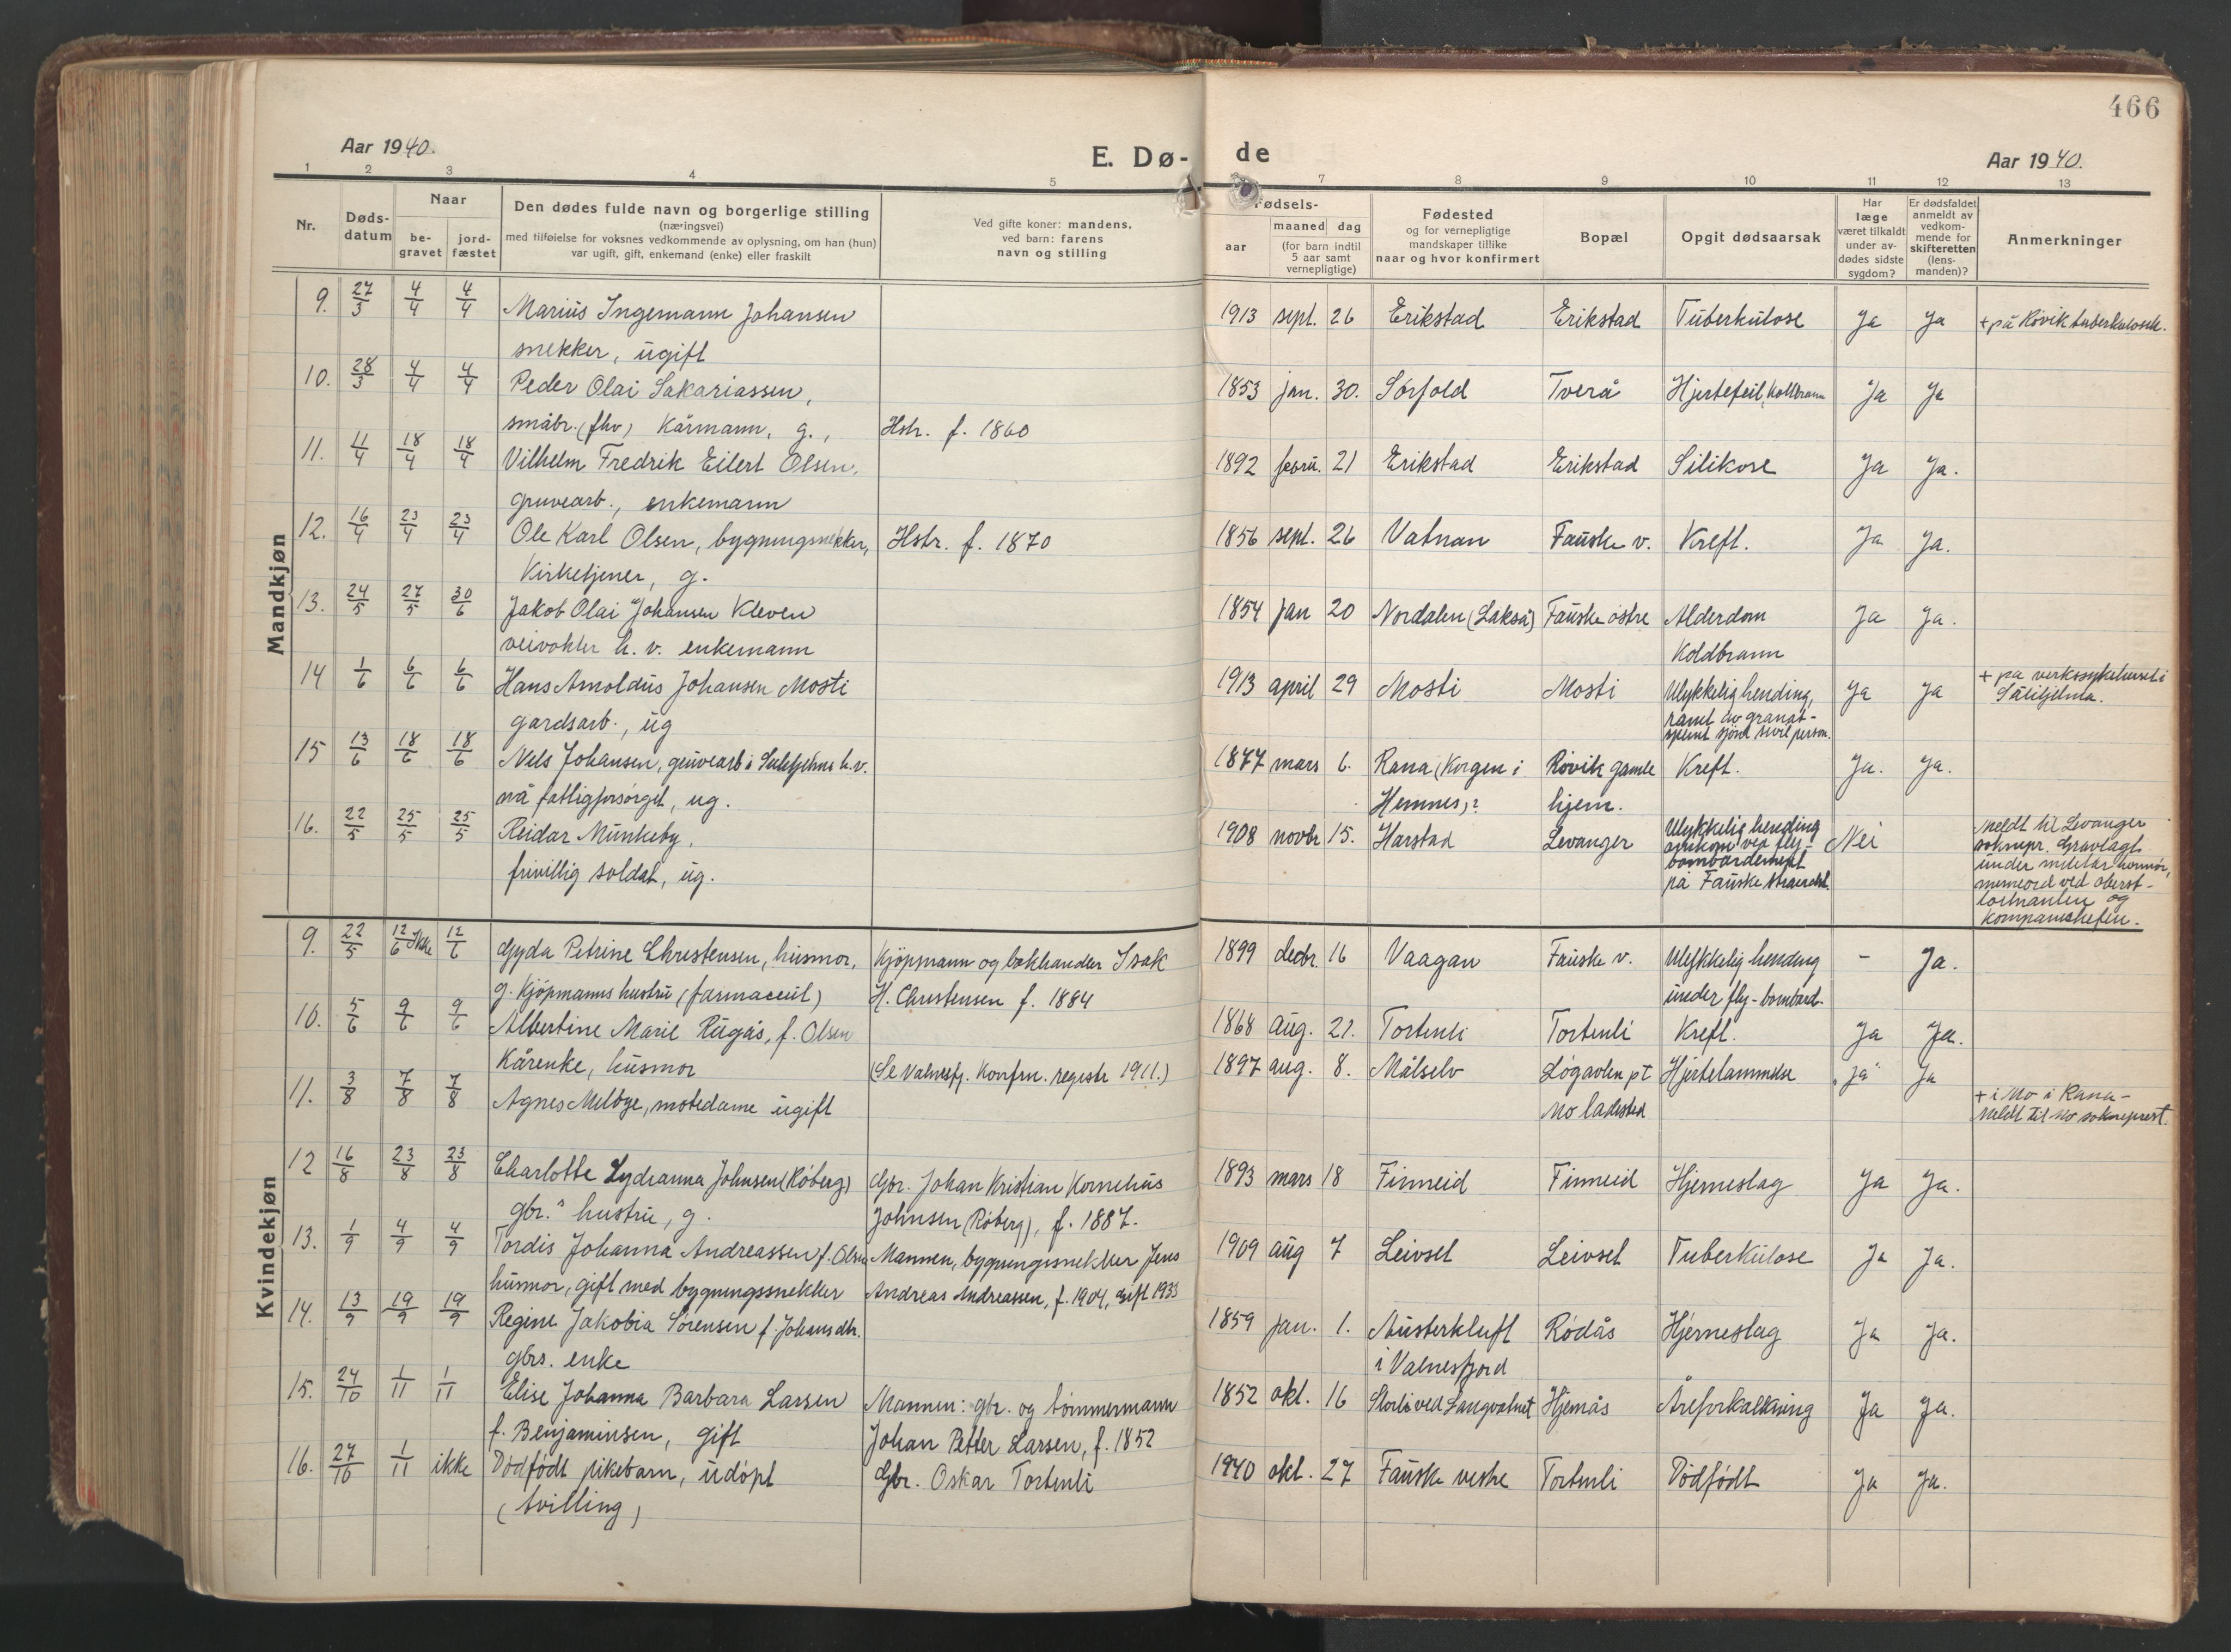 466
Aar 1940.
E. Dø- de
Aar 1940.
1 2 3 4 5 7 8 9 10 11 12 13
Nr.
Døds-
datum
Naar
be-
gravet
jord-
fæstet
Den dødes fulde navn og borgerlige stilling
(næringsvei)
med tilføielse for voksnes vedkommende av oplysning, om han (hun)
var ugift, gift, enkemand (enke) eller fraskilt
Ved gifte koner: mandens,
ved barn: farens
navn og stilling
Fødsels-
aar
maaned dag
(for barn indtil
5 aar samt
vernepligtige)
Fødested
og for vernepligtige
mandskaper tillike
naar og hvor konfirmert
Bopæl
Opgit dødsaarsak
Har
læge
været tilkaldt
under av-
dødes sidste
sygdom?
Er dødsfaldet
anmeldt av
vedkom-
mende for
skifteretten
(lens-
manden)?
Anmerkninger
Mandkjøn
9. 27/3 4/4 4/4 Marius Ingemann Johansen 1913 sept. 26 Erikstad Erikstad Tuberkulose Ja Ja + på Røvik tuberkulosehl.
snekker, ugift
10. 28/3 4/4 4/4 Peder Olai Sakariassen, 1853 jan. 30. Sørfold Tverå Hjertefeil, Koldbrann Ja Ja
småbr. (fhv) Kårmann, g., Hstr. f. 1860
11. 4/4 18/4 18/4 Vilhelm Fredrik Eilert Olsen, 1892 febru. 21 Erikstad Erikstad Silikose Ja Ja.
gruvearb., enkemann
12. 16/4 23/4 23/4 Ole Karl Olsen, bygningsnekker, Hstr. f. 1870 1856 sept. 26 Vatnan Fauske v. Kreft. Ja Ja.
Kirketjener, g.
13. 24/5 27/5 30/6 Jakob Olai Johansen Kleven 1854 jan 20 Nordalen (Lakså) Fauske østre Alderdom Ja Ja.
veivokter h. v. enkemann Koldbrann
14 1/6 6/6 6/6 Hans Arnoldus Johansen Mosti 1913 april 29 Mosti Mosti Ulykkelig hending, Ja Ja + på verkssykehuset i
gardsarb., ug ramt av granat- Sulitjelma.
splint sivil person.
15 13/6 18/6 18/6 Nils Johansen, gruvearb i Sulitjelma h.v. 1877 mars 6. Rana (Korgen i Røvik gamle Kreft. Ja. Ja.
nå fattigforsørget, ug. Hemnes)? hjem.
16. 22/5 25/5 25/5 Reidar Munkeby, 1908 novbr 15. Harstad Levanger Ulykkelig hending Nei Meldt til Levanger
frivillig soldat, ug. omkom ved fly- soknepr. Gravlagt
bombardement under militær honnør,
på Fauske minneord ved oberst-
løitnanten og
kompanichefen.
Kvindekjøn
9. 22/5 12/6 Ikke 12/6 Gyda Petrine Christensen, husmor, Kjøpmann og bokhandler Isak 1899 decbr. 16 Vaagan Fauske v. Ulykkelig hending - Ja.
g. Kjøpmanns hustru (farmaceut) H. Christensen f. 1884 under fly-bombard.
10. 5/6 9/6 9/6 Albertine Marie Rugås, f. Olsen 1868 Aug. 21. Tortenli Tortenli Kreft. Ja Ja.
Kårenke, husmor (Se Valnesfj. Konfrm. registr 1911.)
11. 3/8 7/8 7/8 Agnes Melbye, motedame ugift 1897 aug. 8. Målselv Løgavlen pt Hjertelammelse "ja" Ja + i Mo i Rana -
Mo ladested Meldt til Mo sokneprest.
12 16/8 23/8 23/8 Charlotte Lydianna Johnsen (Røberg) Gbr. Johan Kristian Kornelius 1893 mars 18 Finneid Finneid Hjerneslag Ja Ja.
gbr.s hustru, g. Johnsen (Røberg), f. 1887.
13. 1/9 4/9 4/9 Tordis Johanna Andreassen f. Olsen Mannen, bygningssnekker Jens 1909 aug 7 Leivset Leivset Tuberkulose Ja Ja.
husmor, gift med bygningssnekker Andreas Andreassen, f. 1904, gift 1933
14. 13/9 19/9 19/9 Regine Jakobia Sørensen f. Johansdtr. 1859 jan. 1. Austerkluft Rødås Hjerneslag Ja Ja.
gbrs. enke i Valnesfjord
15. 24/10 1/11 1/11 Elise Johanna Barbara Larsen Mannen: gbr. og tømmermann 1852 okt. 16 Storli ved Langvatnet Hjemås Åreforkalkning Ja Ja.
f. Benjaminsen, gift Johan Petter Larsen, f. 1852
16. 27/10 1/11 ikke Dødfødt pikebarn, udøpt Gbr. Oskar Tortenli 1940 okt. 27 Fauske vestre Tortenli Dødfødt Ja Ja.
(tvilling)